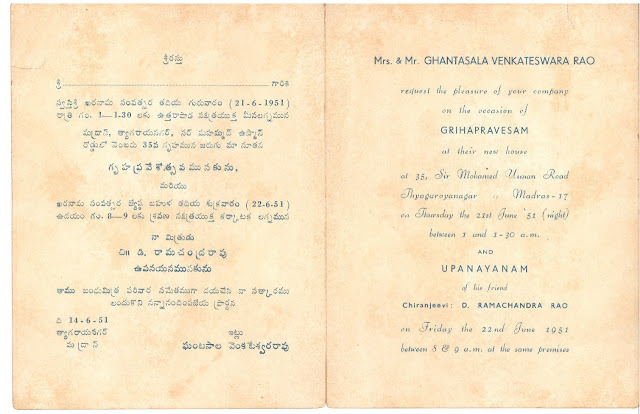 శ్రీరస్తు
శ్రీ ............ గారికి
స్వస్తిశ్రీ ఖరనామ సంవత్సర తదియ గురువారం (21-6-1951)
రాత్రి గం. 1—1-30 లకు ఉత్తరాషాఢ నక్షత్రయుక్త మీనలగ్నమున
మద్రాస్, త్యాగరాయనగర్, సర్ మహమ్మద్ ఉస్మాన్
రోడ్డులో నెంబరు 35వ గృహమున జరుగు మా నూతన
గృహప్రవేశోత్సవమునకును,
మరియు
ఖరనామ సంవత్సర జ్యేష్ఠ బహుళ తదియ శుక్రవారం (22-6-51)
ఉదయం గం. 8—9 లకు శ్రవణ నక్షత్రయుక్త కర్కాటక లగ్నమున
నా మిత్రుడు
చి॥ డి. రామచంద్రరావు
ఉపనయనమునకును
తాము బంధుమిత్ర పరివార సమేతముగా దయచేసి నా సత్కారము
లందుకొని నన్నానందింపజేయ ప్రార్థన
ది 14-6-51
త్యాగరాయనగర్
మద్రాస్
ఇట్లు
ఘంటసాల వెంకటేశ్వరరావు
Mrs. & Mr. GHANTASALA VENKATESWARA RAO
request the pleasure of your company
on the occasion of
GRIHAPRAVESAM
at their new house
at 35, Sir Mohamed Usman Road
Thyagaroyanagar :: Madras-17
on Thursday the 21st June '51 (night)
between 1 and 1-30 a.m.
AND
UPANAYANAM
of his friend
Chiranjeevi: D. RAMACHANDRA RAO
on Friday the 22nd June 1951
between 8 & 9 a.m. at the same premises